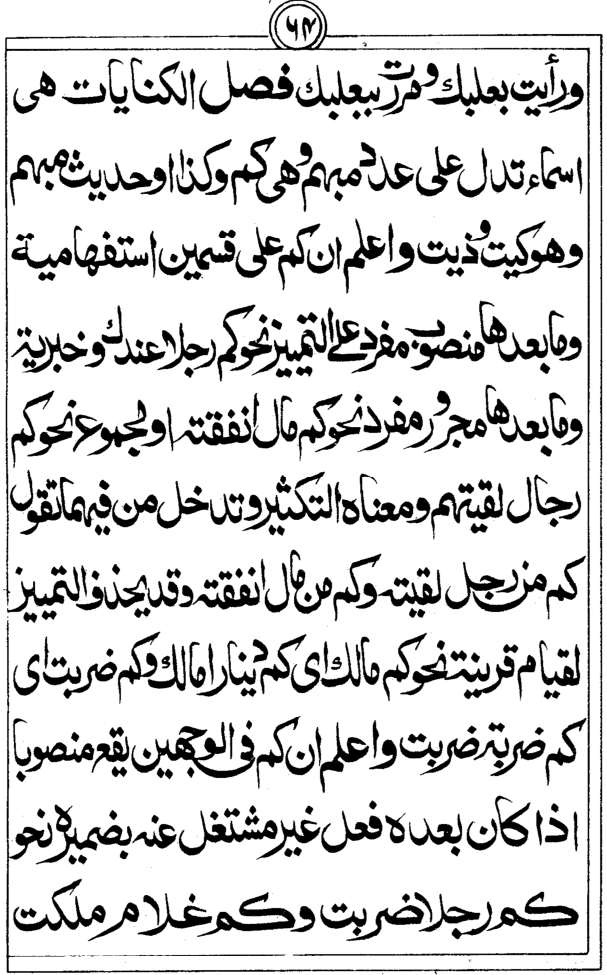 ٦٤
ورأيت بعلبك ومررت ببعلبك فصل الكنايات هى
اسماء تدل على عدد مبهم وهى كم وكذا او حديث مبهم
وهو كيت وذيت واعلم ان كم على قسمين استفهامية
وما بعدها منصوب مفرد على التمييز نحو كم رجلا عندك وخبرية
وما بعدها مجرور مفرد نحو كم مال انفقته او مجموع نحو كم
رجال لقيتهم ومعناه التكثير وتدخل من فيهما تقول
كم من رجل لقيته وكم من مال انفقته وقد يحذف التمييز
لقيام قرينة نحو كم مالك اى كم دينارا مالك وكم ضربت اى
كم ضربة ضربت واعلم ان كم فى الوجهين يقع منصوبا
اذا كان بعده فعل غير مشتغل عنه بضميره نحو
كم رجلا ضربت وكم غلام ملكت